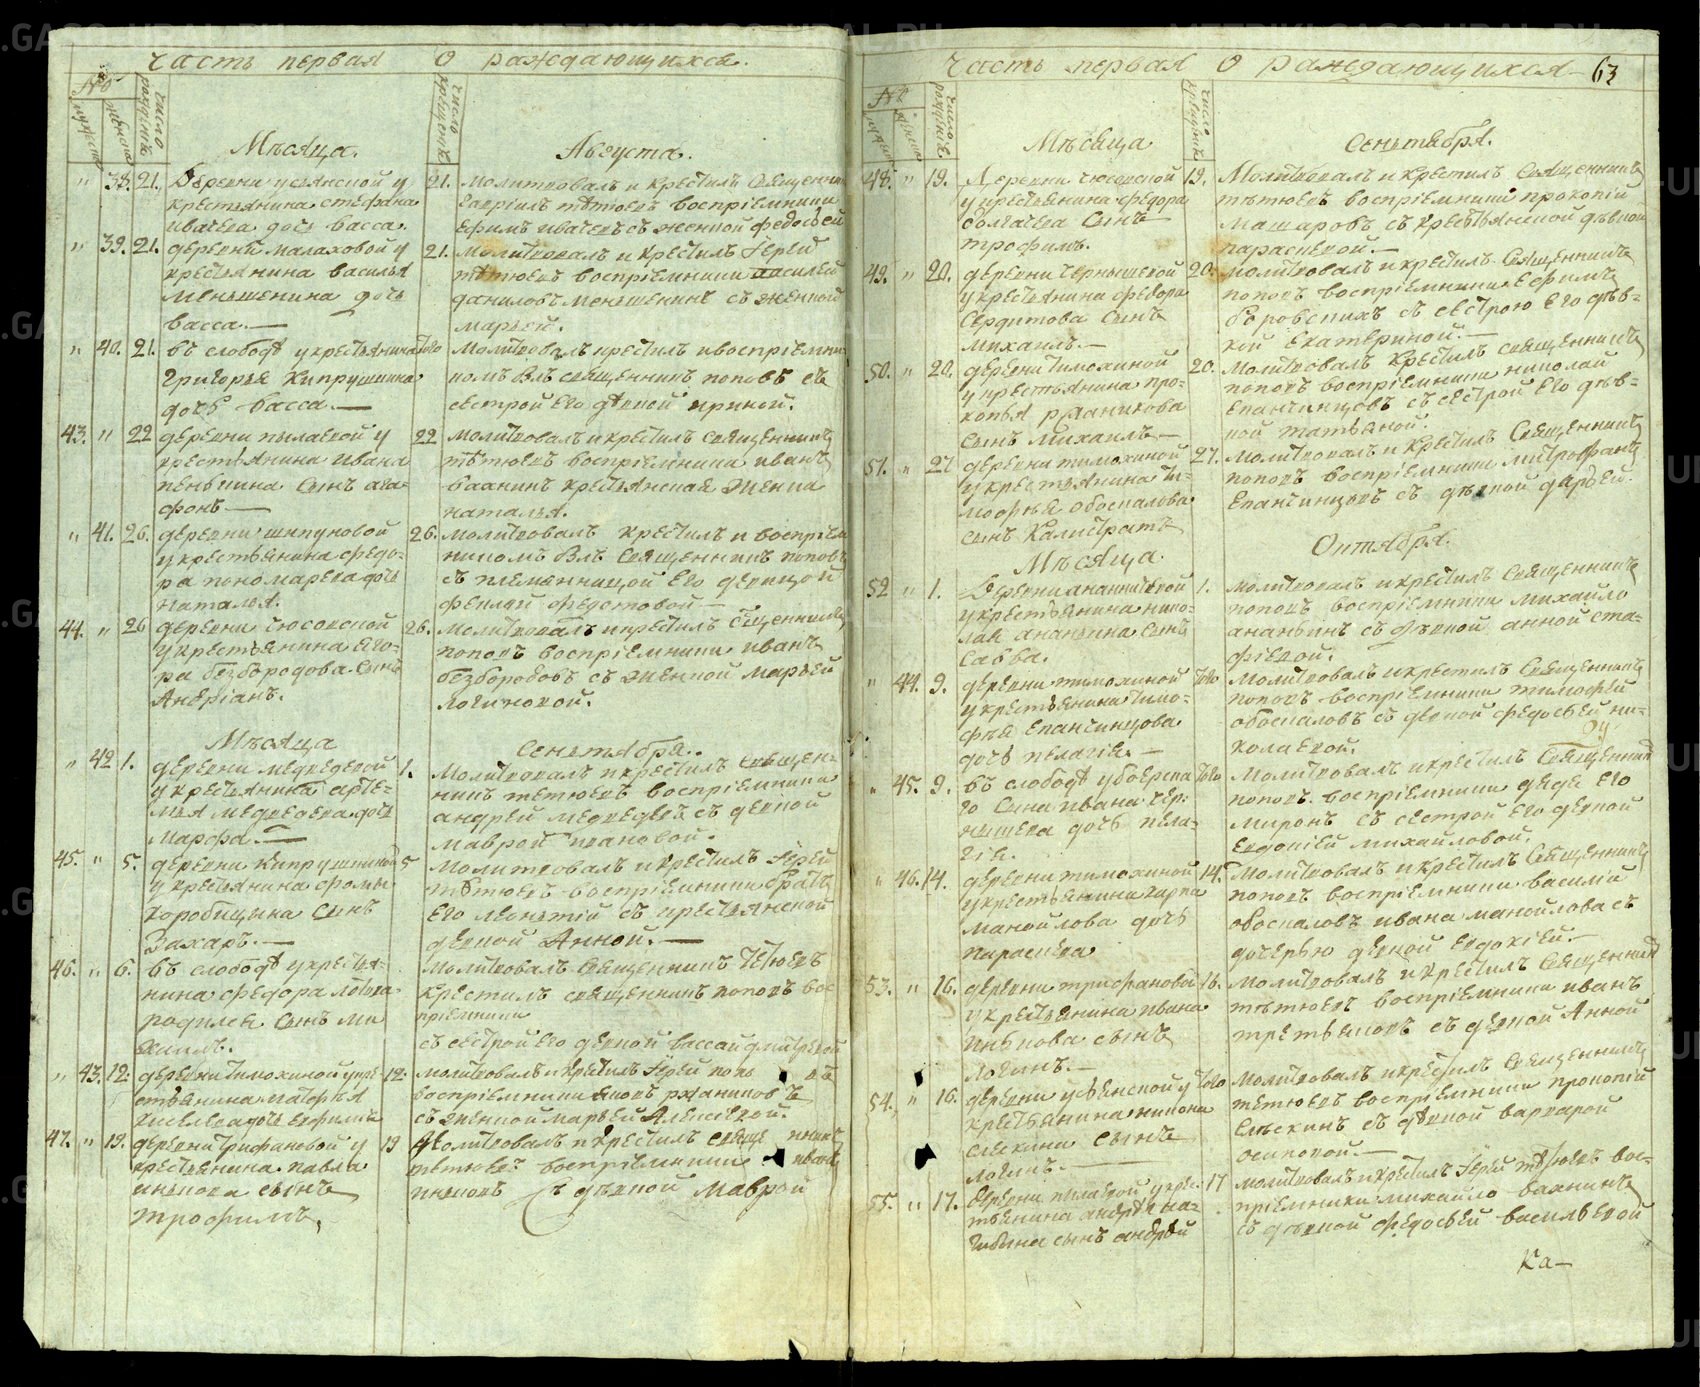 часть первая о раждающихся.
№
мужеска
женска
число рожденiя
число крещенiя
Мѣсяца. Августа.
" 38. 21. Деревни усянской у
крестьянина стефана
ивачева дочь васса.
21. молитвовалъ и крестилъ священни
гавриилъ тѣтюевъ воспрiемники
ефимъ ивачевъ съ женкой федосьей
" 39. 21. деревни малаховой у
крестьянина василья
меньшенина дочь
васса.—
21. молитвовалъ и крестилъ Iерей
тѣтюевъ воспрiемники василей
даниловъ меньшенинъ съ женкой
марьей.
" 40. 21. въ слободѣ у крестьянина
григорья Кипрушкина
дочь васса.—
того молитвовалъ крестилъ и воспрiемни
комъ былъ священникъ поповъ съ
сестрой его дѣвкой ириной.
43. " 22 деревни пылаевой у
крестьянина ивана
пенькина сынъ ага-
фонъ—
22 молитвовалъ и крестилъ священникъ
тѣтюевъ воспрiемники иванъ
бахнинъ крестьянская женка
наталья.
" 41. 26. деревни шипуновой
у крестьянина федо-
ра пономарева дочь
наталья.
26. молитвовалъ крестилъ и воспрiем
никомъ былъ священникъ поповъ
съ племянницой его девицой
феклой федотовой—
44. " 26 деревни чюсовской
у крестьянина его-
ра безбородова сынъ
Андрiанъ.
26. молитвовалъ и крестилъ священникъ
поповъ воспрiемники иванъ
безбородовъ съ женкой марьей
логиновой.
Мѣсяца Сентября.
" 42 1. деревни медведевой
у крестьянина арте-
мья медведева дочь
марфа.—
1. молитвовалъ и крестилъ священ-
никъ тетюевъ воспрiемники
андрей медведевъ съ девкой
маврой ивановой.
45. " 5. деревни Кипрушкиной
у крестьянина фомы
коробицына сынъ
Захаръ.—
5 молитвовалъ и крестилъ Iерей
тѣтюевъ воспрiемники братъ
его леонтiй съ крестьянской
девкой Анной.—
46. " 6. въ слободѣ у крестья-
нина федора
родился сынъ ми
хаилъ.
молитвовалъ священникъ тетюевъ
крестилъ священникъ поповъ вос
прiемники
съ сестрой его девкой вассай дмитревой
" 43. 12. деревни тимохиной у кре-
стьянина матфея
киселева дочь евфимья
12. молитвовалъ и крестилъ Iерей попо въ
воспрiемники яковъ ржаников ъ
съ женкой марьей Алексѣевой.
47. " 19. деревни трифановой у
крестьянина павла
инькова сынъ
трофимъ.
19 молитвовалъ и крестилъ свяще нникъ
тѣтюевъ воспрiемники иванъ
иньковъ съ дѣвкой маврой
часть первая о раждающихся 63
№
число рожденiя
число крещенiя
Мѣсяца Сентября.
48. " 19. Деревни чюсовской
у крестьянина федора
болчаева сынъ
трофимъ.
19. Молитвовалъ и крестилъ священникъ
тѣтюевъ воспрiемники прокопiй
машаровъ съ крестьянской дѣвкой
парасковой.—
49. " 20. деревни чернышевой
у крестьянина федора
Сердитова сынъ
михаилъ.—
20. молитвовалъ и крестилъ священникъ
поповъ воспрiемники ефимъ
боровскихъ съ сестрою его дѣв-
кой Екатериной.—
50. " 20. деревни тимохиной
у крестьянина про-
копья ржаникова
сынъ михаилъ—
20. молитвовалъ крестилъ священникъ
поповъ воспрiемники николай
епанчинцовъ съ сестрой его дѣв-
кой татьяной.
51. " 27 деревни тимохиной
у крестьянина ти-
мофея обоскалова
сынъ Калистратъ
27. молитвовалъ и крестилъ священникъ
поповъ воспрiемники митрофанъ
Епанчинцовъ съ дѣвкой дарьей.
Мѣсяца Октября.
52 " 1. Деревни ананьиной
у крестьянина нико-
лая ананьина сынъ
Савва.
1. молитвовалъ и крестилъ священникъ
поповъ воспрiемники михайло
ананьинъ съ дѣвкой анной ста-
фiевой.
" 44. 9. деревни тимохиной
у крестьянина тимо-
фѣя епанчинцова
дочь пелагiя.—
того молитвовалъ и крестилъ священникъ
поповъ воспрiемники тимофей
обоскаловъ съ девкой федосьей ни-
колаевой.
" 45. 9. въ слободѣ
сына ивана чер-
нышева дочь пела-
гiя.
того молитвовалъ и крестилъ священникъ
поповъ воспрiемники дядя его
миронъ съ сестрой его девкой
Евдокiей михайловой.
" 46. 14. деревни тимохиной
у крестьянина карпа
манойлова дочь
параскева
14. Молитвовалъ и крестилъ священникъ
поповъ воспрiемники василiй
обоскаловъ ивана манойлова съ
дочерью девкой евдокiей.—
53. " 16. деревни трифановой
у крестьянина ивана
Инькова сынъ
логинъ.—
16. молитвовалъ и крестилъ священникъ
тѣтюевъ воспрiемники иванъ
третьяковъ съ девкой Анной
54. " 16. деревни усьянской у
крестьянина никона
слѣскина сынъ
логинъ.—
того молитвовалъ и крестилъ священникъ
тетюевъ воспрiемники прокопiй
слѣскинъ съ дѣвкой варварой
осиповой.—
55. " 17. Деревни пылаевой у кре-
стьянина андрѣя
сынъ андрѣй
17 молитвовалъ и крестилъ Iерей тѣтюевъ вос-
прiемники михайло бахнинъ
съ дѣвкой федосьей васильевой
Ка—